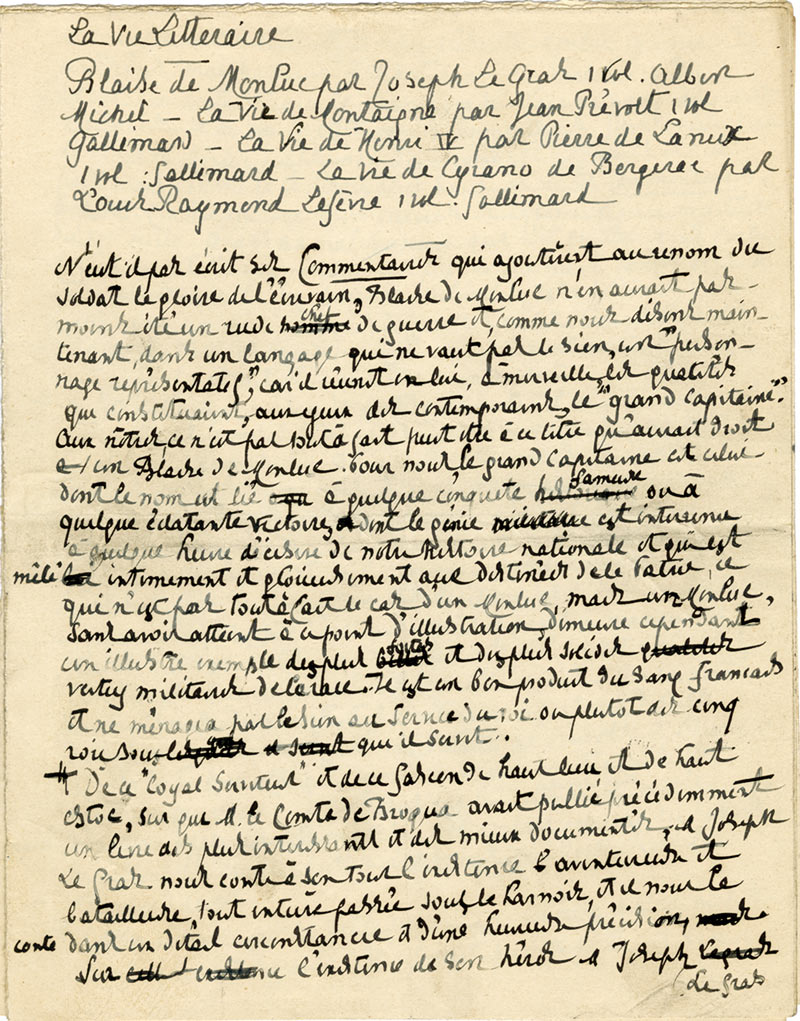 La Vie Littéraire
Blaise de Monluc par Joseph Le Gras 1 vol. Albin
Michel – La Vie de Montaigne par Jean Prévost 1 vol
Gallimard – La Vie de Henri IV par Pierre de Lanux
1 vol : Gallimard – La Vie de Cyrano de Bergerac par
Louis Raymond Lefèvre 1 vol. Gallimard
N'eut-il pas écrit ses Commentaires qui ajoutèrent au renom du
soldat la gloire de l'écrivain, Blaise de Monluc n'en aurait pas
moins été un rude homme chef de guerre et, comme nous disons main-
tenant, dans un langage qui ne vaut pas le sien, un "person-
nage représentatif", car il réunit en lui, à merveille, les qualités
qui constituaient, aux yeux des contemporains, le "grand capitaine".
Aux nôtres, ce n'est pas tout à fait peut être à ce titre qu'aurait droit
un Blaise de Monluc. Pour nous le grand capitaine est celui
dont le nom est lié à quelque conquête fameuse ou à
quelque éclatante victoire, dont le génie militaire est intervenu
à quelque heure décisive de notre histoire nationale et qui est
mêlé intimement et glorieusement aux destinées de la Patrie, ce
qui n'est pas tout à fait le cas d'un Monluc, mais un Monluc,
sans avoir atteint à ce point d'illustration, demeure cependant
un illustre exemple des plus et des plus solides qualités
vertus militaires de la race. Il est un bon produit du sang français
et ne ménagea pas le sien au service du roi ou plutôt des cinq
rois sous qu'il servit.
De ce "loyal serviteur" et de ce Gascon de haut lieu et de haut
estoc, sur qui M. le Comte de Broqua avait publié précédemment
un livre des plus intéressants et des mieux documentés, M Joseph
Le Gras nous conte à son tour l'existence aventureuse et
batailleuse, tout entière passée sous le harnois, et il nous la
conte dans un détail circonstancié et d'une heureuse précision, mais
Sur l'existence de son héros M Joseph Legras
Le Gras